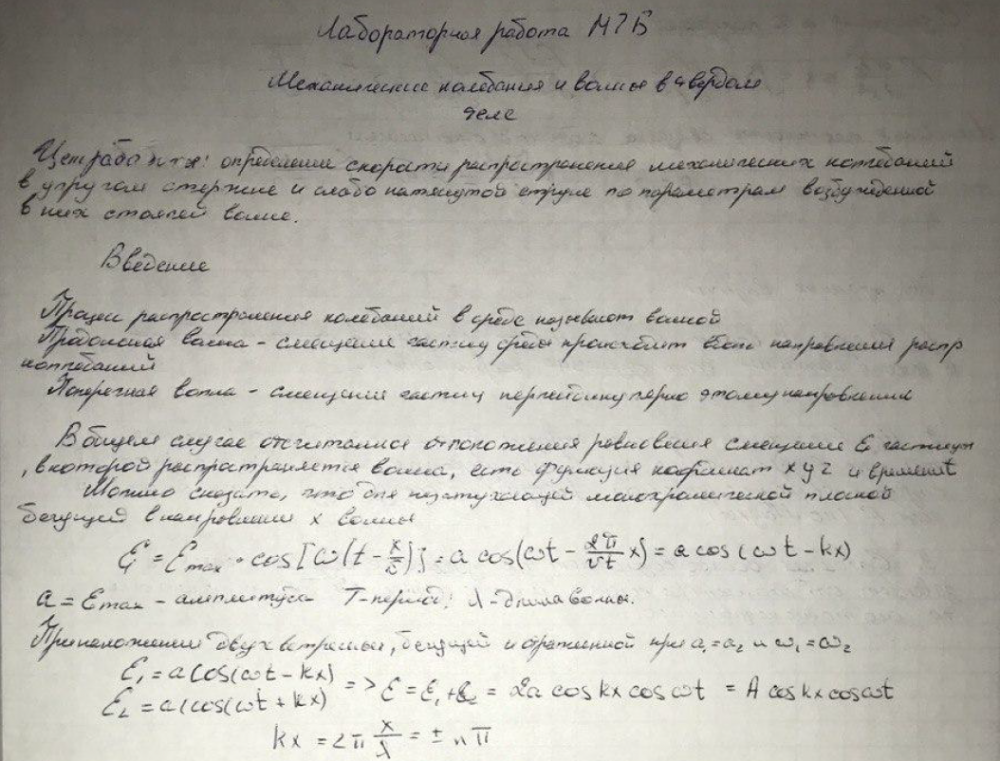 Лабораторная работа М7Б
Механические колебания и волны в твердом
теле
Цель работы: определение скорости распространения механических колебаний
в упругом стержне и слабо натянутой струне по параметрам возбужденной
в них стоячей волне.
Введение
Процесс распространения колебаний в среде называют волной
Продольная волна - смещение частиц среды происходит вдоль направления распр
колебаний
Поперечная волна - смещение частиц перпендикулярно этому направлению
В общем случае отсчитанное от положения равновесия смещение Ɛ частицы
, в которой распространяется волна, есть функция координат x y z и времени t
Можно сказать, что для незатухающей монохроматической плоской
бегущей в направлении x волны
Ɛ = Ɛmax · cos[ω(t - x/v)] = a cos(ωt - 2π/vt x) = a cos(ωt - kx)
a = Ɛmax - амплитуда T - период; λ - длина волны.
При наложении двух встречных, бегущей и отраженной при a₁=a₂ и ω₁=ω₂
Ɛ₁ = a cos(ωt - kx)
Ɛ₂ = a cos(ωt + kx) => Ɛ = Ɛ₁+Ɛ₂ = 2a cos kx cos ωt = A cos kx cos ωt
kx = 2π x/λ = ± nπ